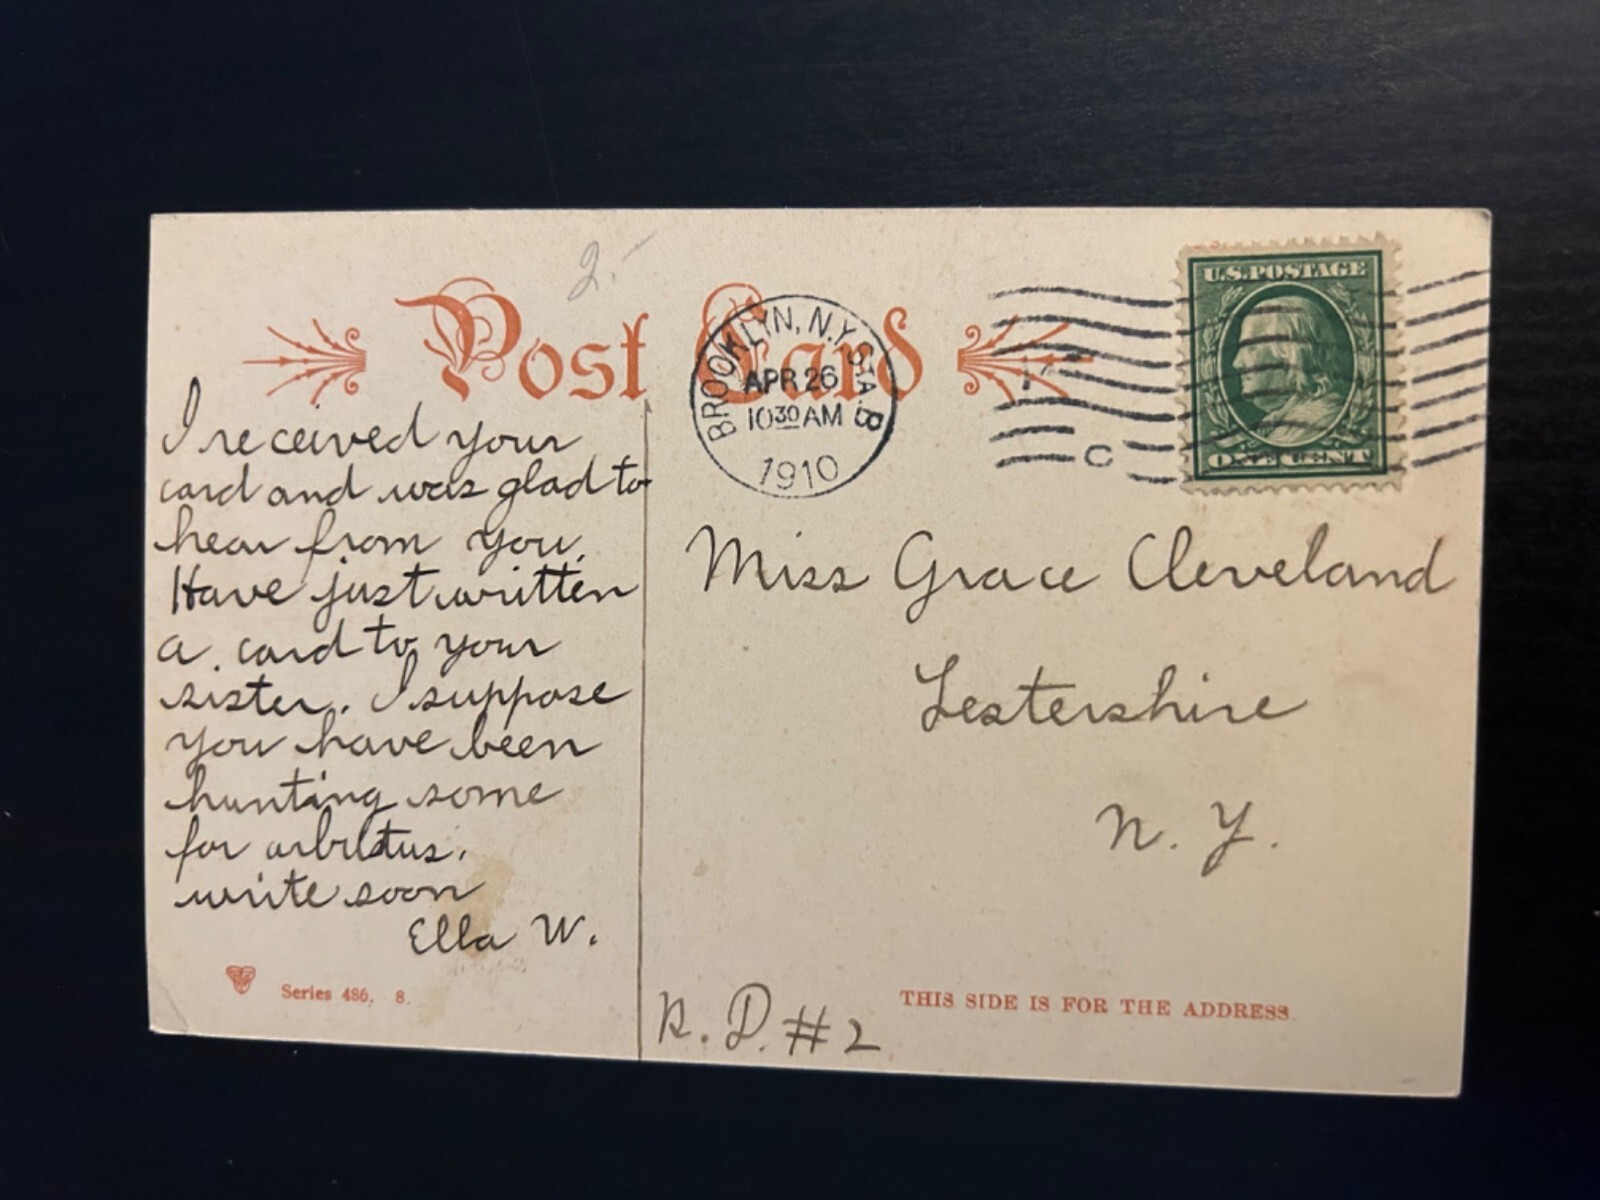 2.-
Post Card
BROOKLYN, N.Y. STA. B
APR 26
10 30 AM
1910
U.S. POSTAGE
ONE CENT
I received your
card and was glad to
hear from you.
Have just written
a card to your
sister. I suppose
you have been
hunting some
for arbutus.
write soon
Ella W.
Miss Grace Cleveland
Lestershire
N. Y.
R. D. #2
Series 486. 8.
THIS SIDE IS FOR THE ADDRESS.
C